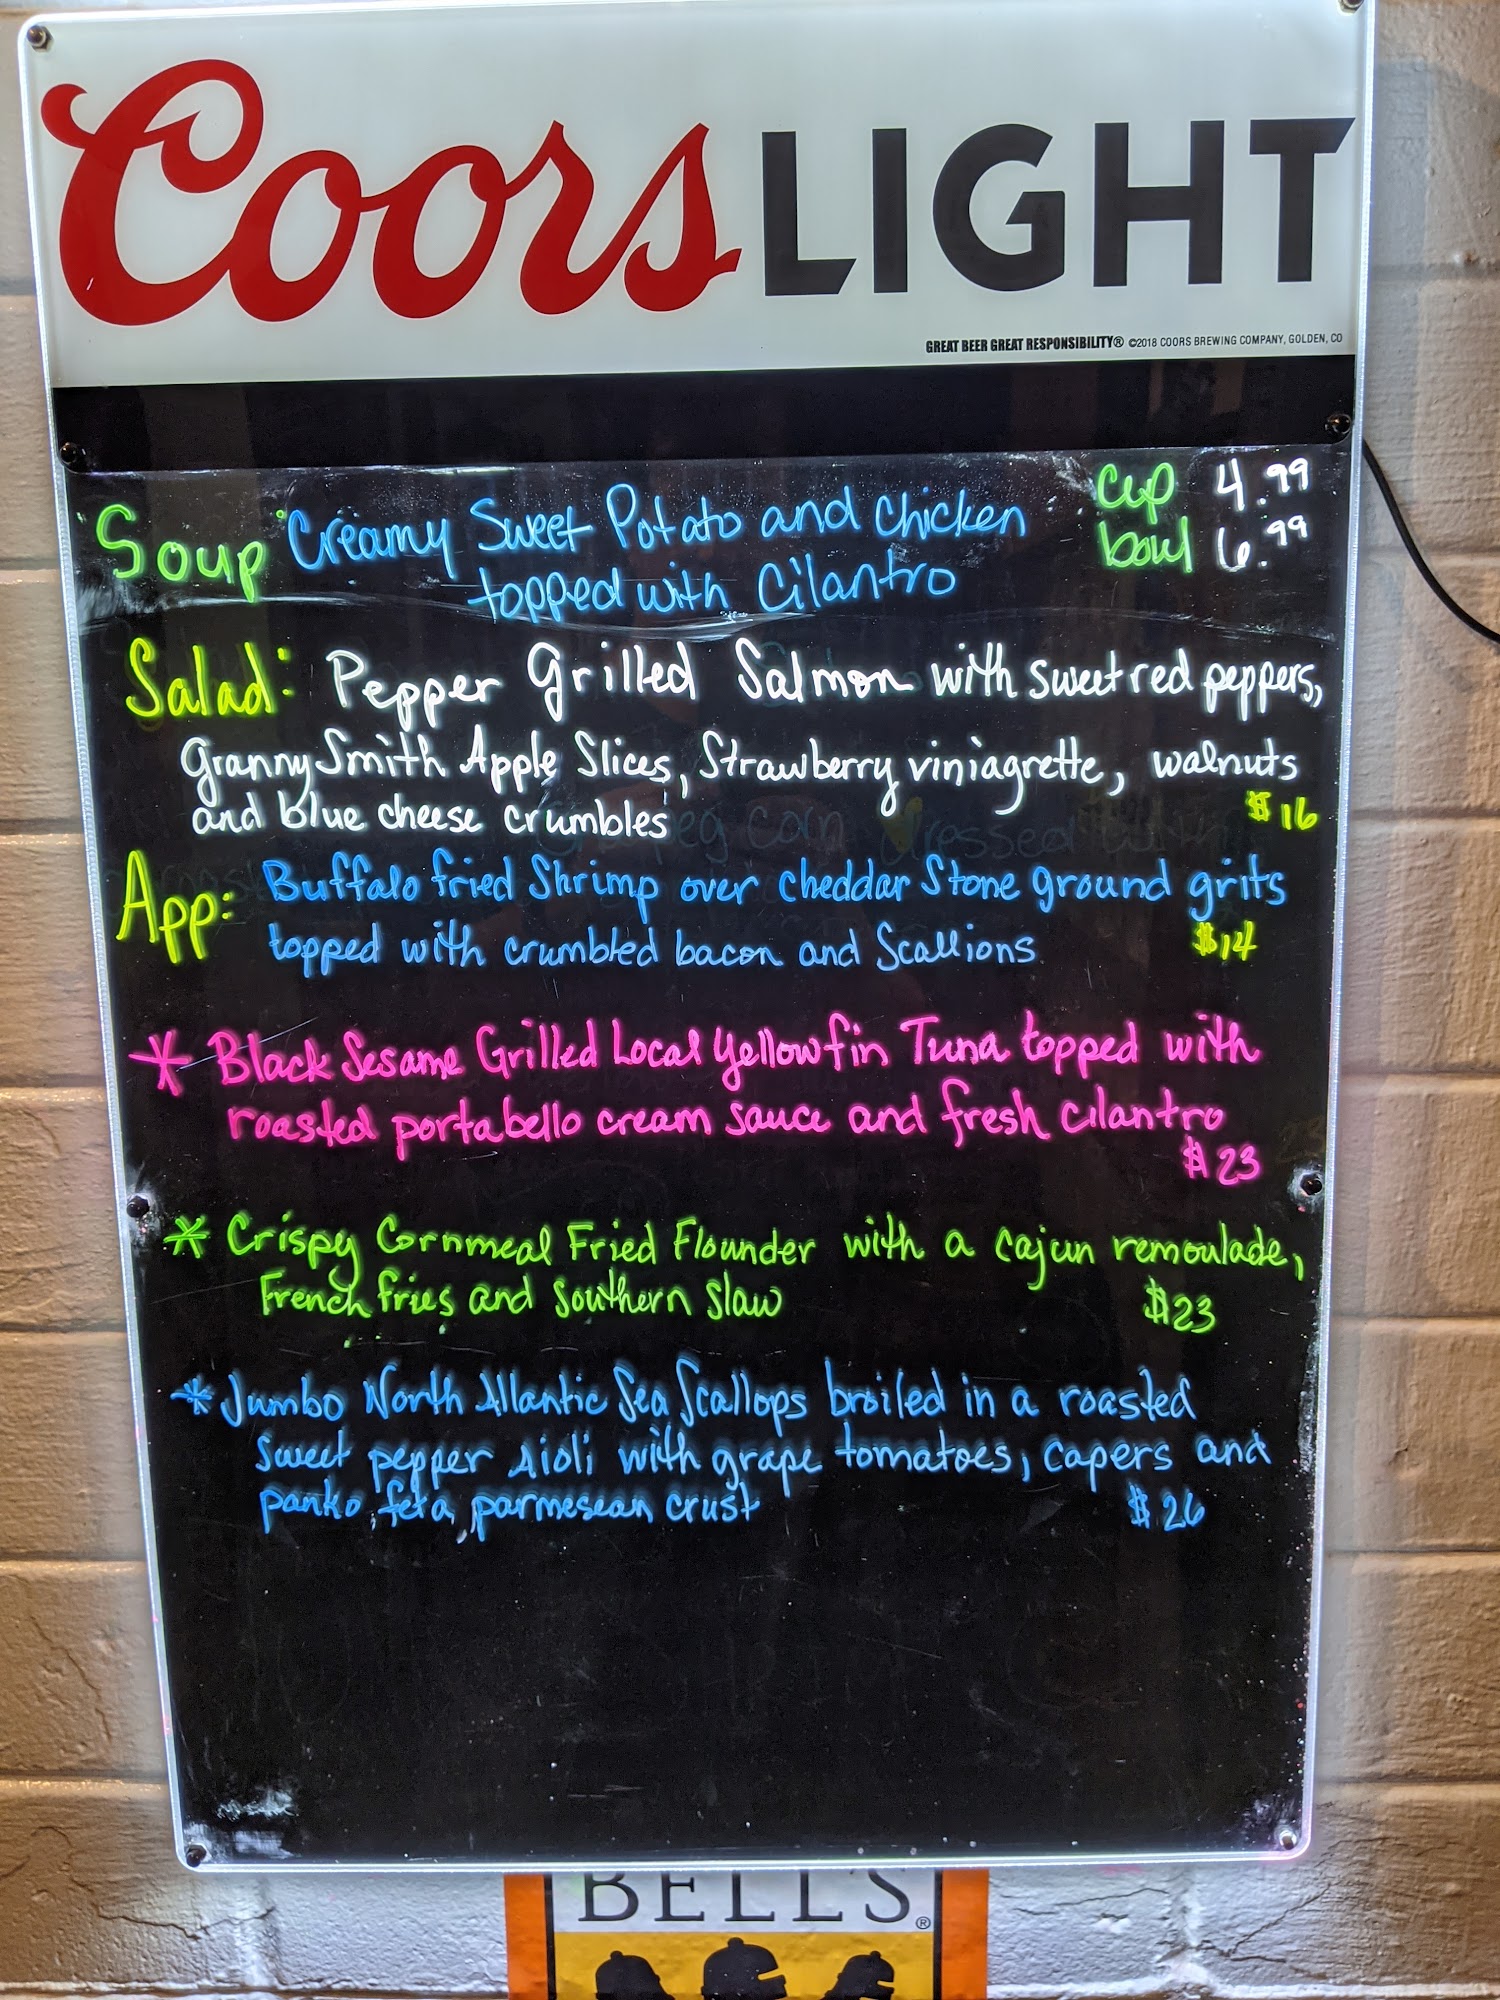 Coors LIGHT
GREAT BEER GREAT RESPONSIBILITY® ©2018 COORS BREWING COMPANY, GOLDEN, CO
Soup Creamy Sweet Potato and chicken cup 4.99
topped with Cilantro bowl 6.99
Salad: Pepper Grilled Salmon with sweet red peppers,
Granny Smith Apple Slices, Strawberry viniagrette, walnuts
and blue cheese crumbles $16
App: Buffalo fried Shrimp over cheddar Stone ground grits
topped with crumbled bacon and Scallions $14
* Black Sesame Grilled Local Yellowfin Tuna topped with
roasted portabello cream sauce and fresh cilantro
$23
* Crispy Cornmeal Fried Flounder with a cajun remoulade,
French fries and Southern Slaw $23
* Jumbo North Atlantic Sea Scallops broiled in a roasted
sweet pepper aioli with grape tomatoes, capers and
panko, feta, parmesean crust $26
BELL'S®